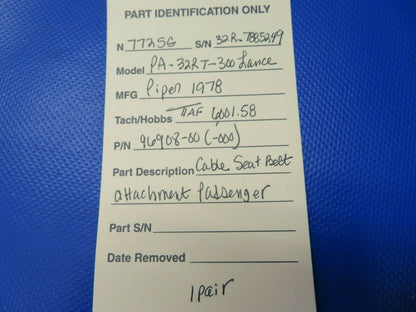 PART IDENTIFICATION ONLY
N 772SG S/N 32R-7885249
Model PA-32RT-300 Lance
MFG Piper 1978
Tach/Hobbs TTAF 6001.58
P/N 96908-00 (-000)
Part Description Cable Seat Belt
attachment Passenger
Part S/N
Date Removed
1 pair